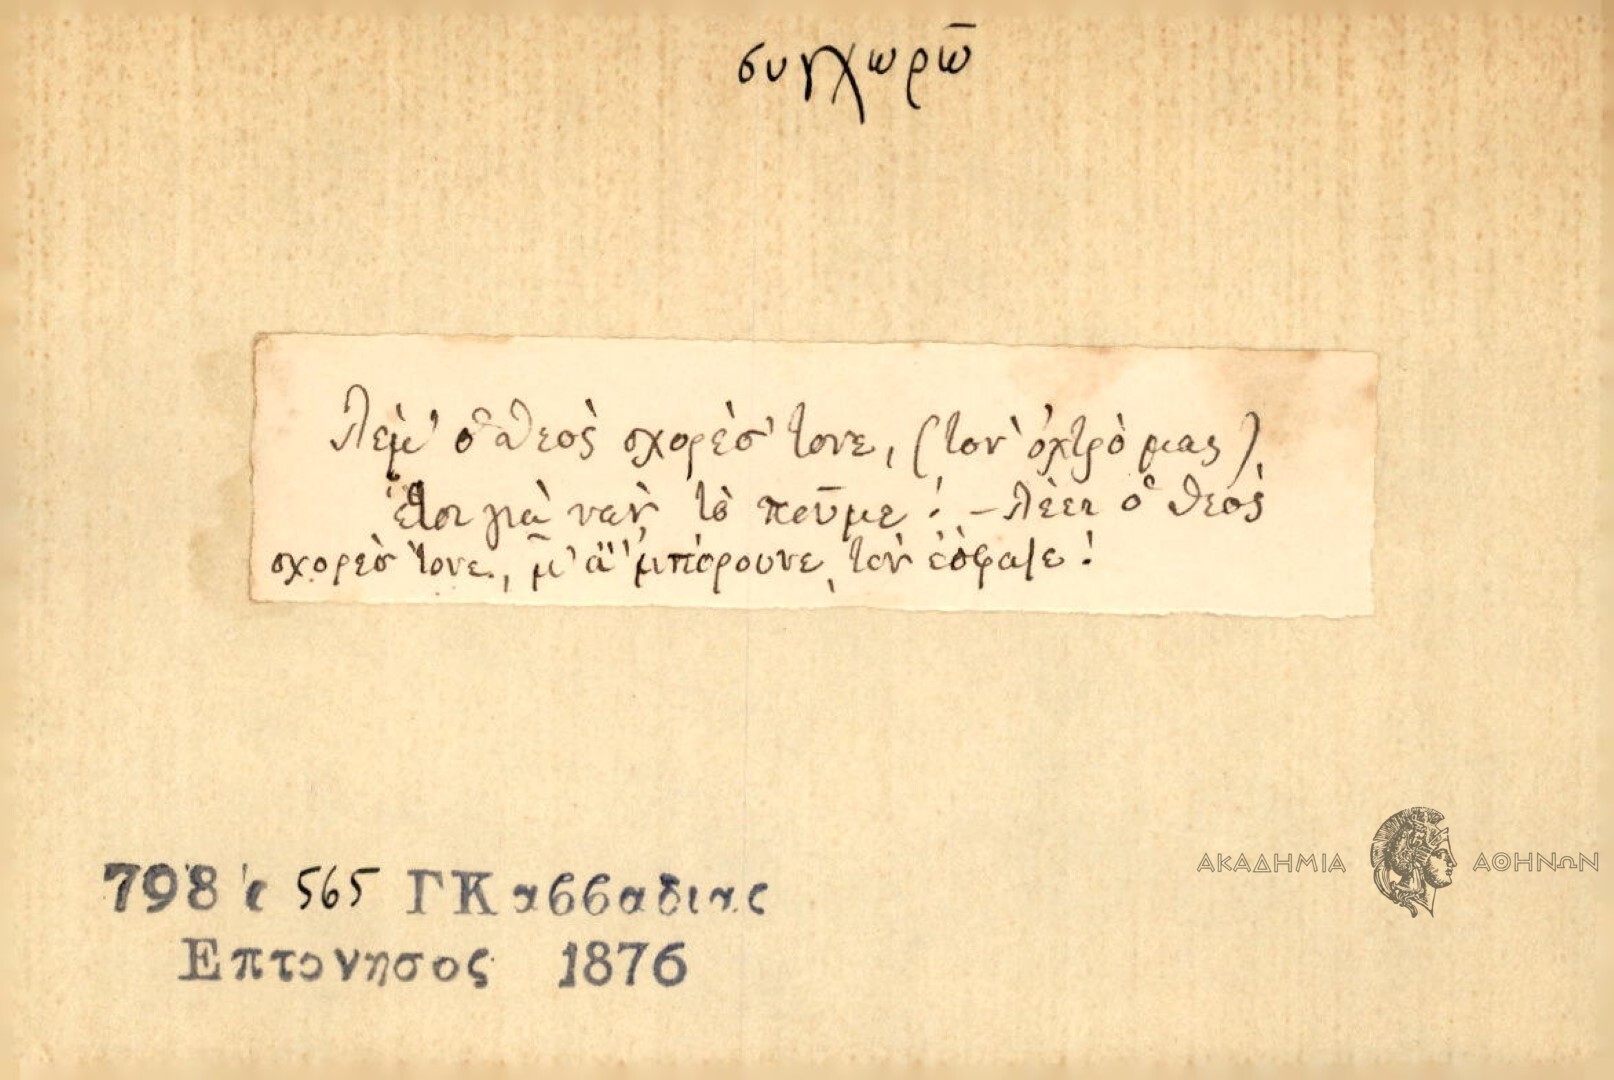 συγχωρῶ
Λέμ' ὁ θεὸς σχορέσ' τονε, (τὸν ὀχτρό μας)
ἔτσι γιὰ νὰν τὸ ποῦμε! – λέει ὁ θεὸς
σχορέσ' τονε, μ' ἂ 'μπόρουνε, τὸν ἔσφαζε!
798 ε 565 ΓΚαββαδιας
Επτονησος 1876
ΑΚΑΔΗΜΙΑ ΑΘΗΝΩΝ